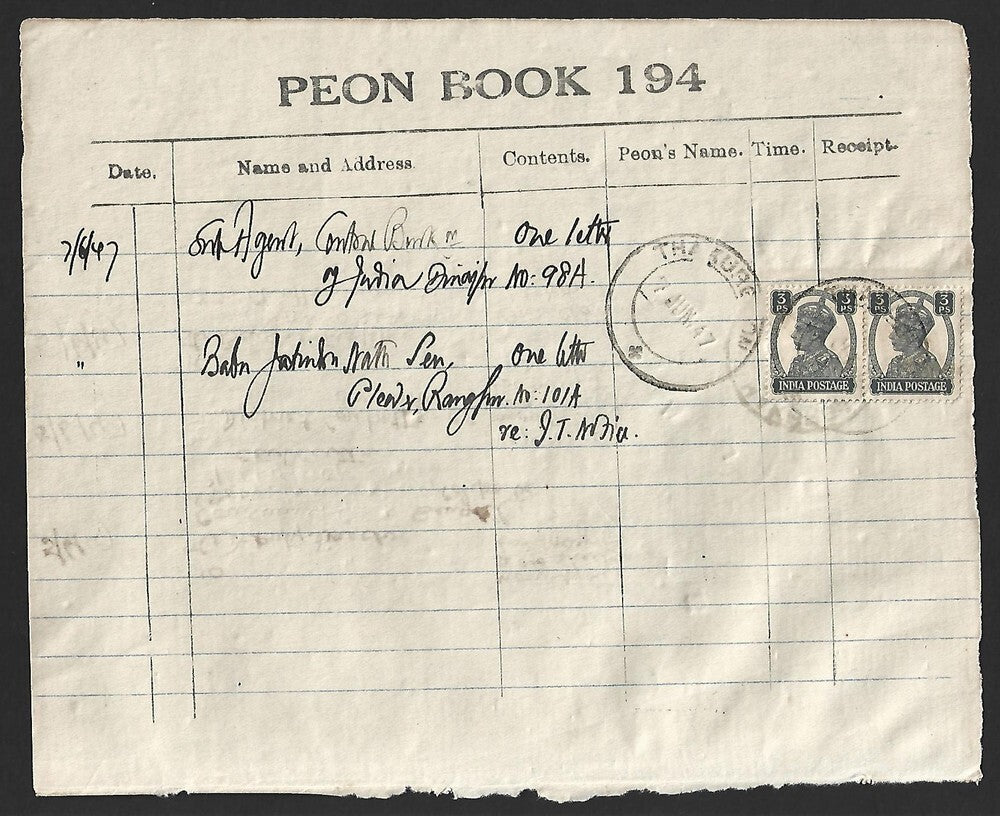 PEON BOOK 194
Date. Name and Address. Contents. Peon's Name. Time. Receipt.
7/6/47 Sub Agent, Central Bank of One letter
of India Dinajpur No: 98A.
" Babu Jatindra Nath Sen, One letter
Pleader, Rangpur. No: 101A
re: J.T.
THAKURGAON
7 JUN. 47
3 PS 3 PS 3 PS 3 PS
INDIA POSTAGE INDIA POSTAGE